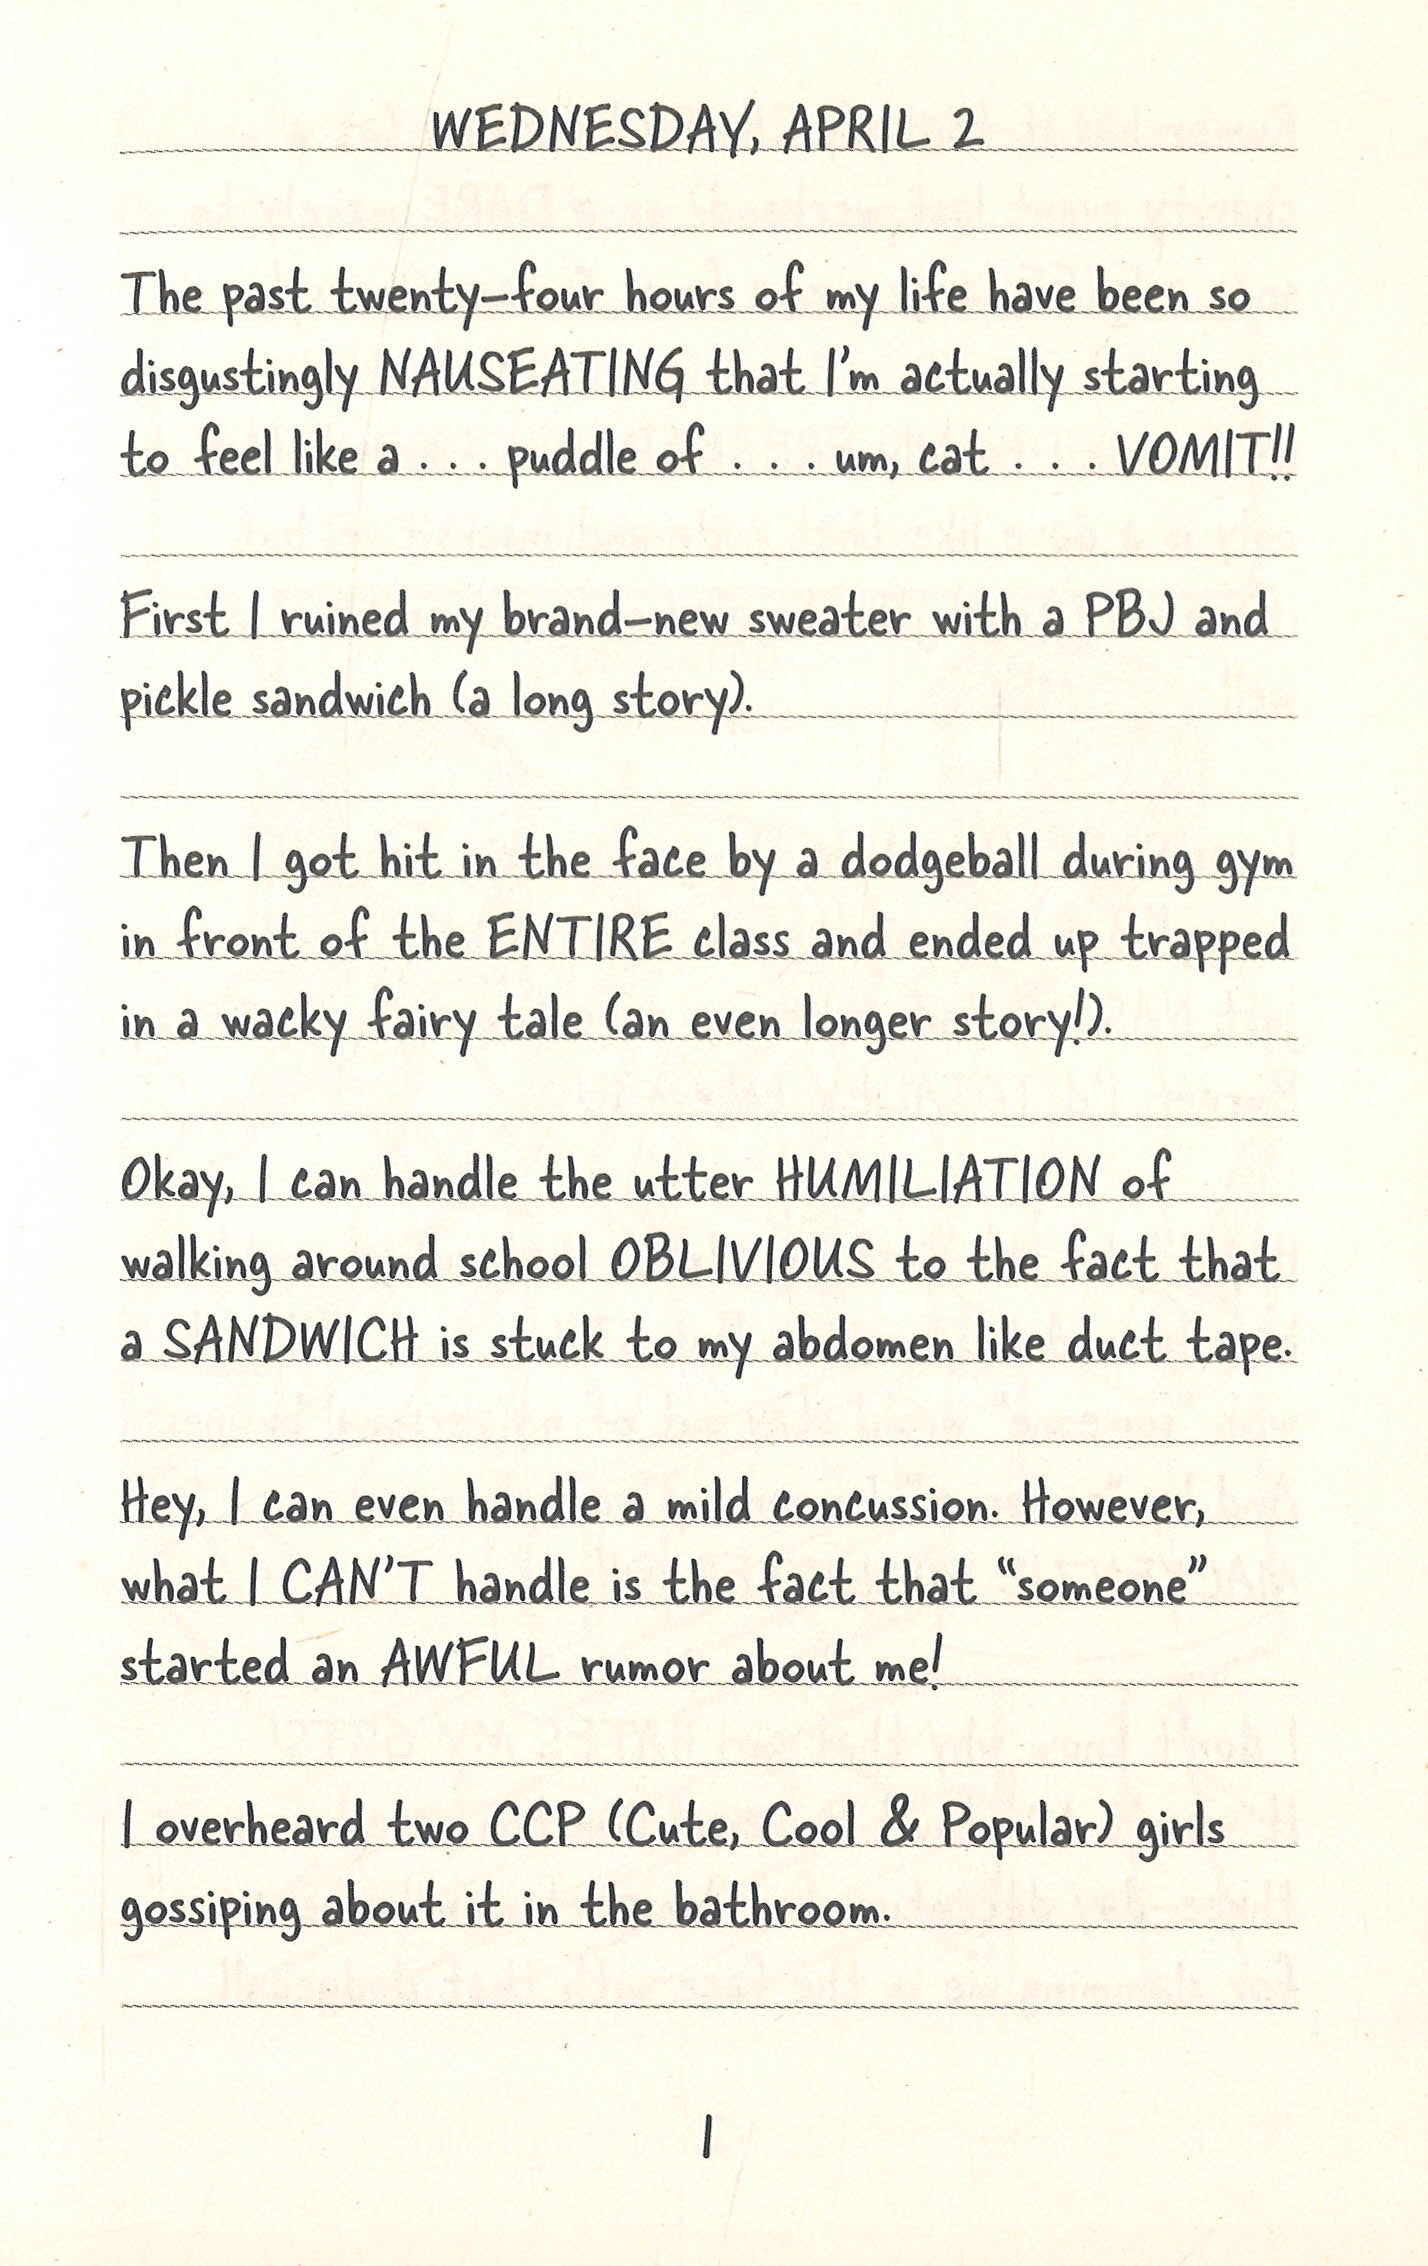 WEDNESDAY, APRIL 2
The past twenty-four hours of my life have been so
disgustingly NAUSEATING that I'm actually starting
to feel like a . . . puddle of . . . um, cat . . . VOMIT!!
First I ruined my brand-new sweater with a PBJ and
pickle sandwich (a long story).
Then I got hit in the face by a dodgeball during gym
in front of the ENTIRE class and ended up trapped
in a wacky fairy tale (an even longer story!).
Okay, I can handle the utter HUMILIATION of
walking around school OBLIVIOUS to the fact that
a SANDWICH is stuck to my abdomen like duct tape.
Hey, I can even handle a mild concussion. However,
what I CAN'T handle is the fact that “someone”
started an AWFUL rumor about me!
I overheard two CCP (Cute, Cool & Popular) girls
gossiping about it in the bathroom.
1